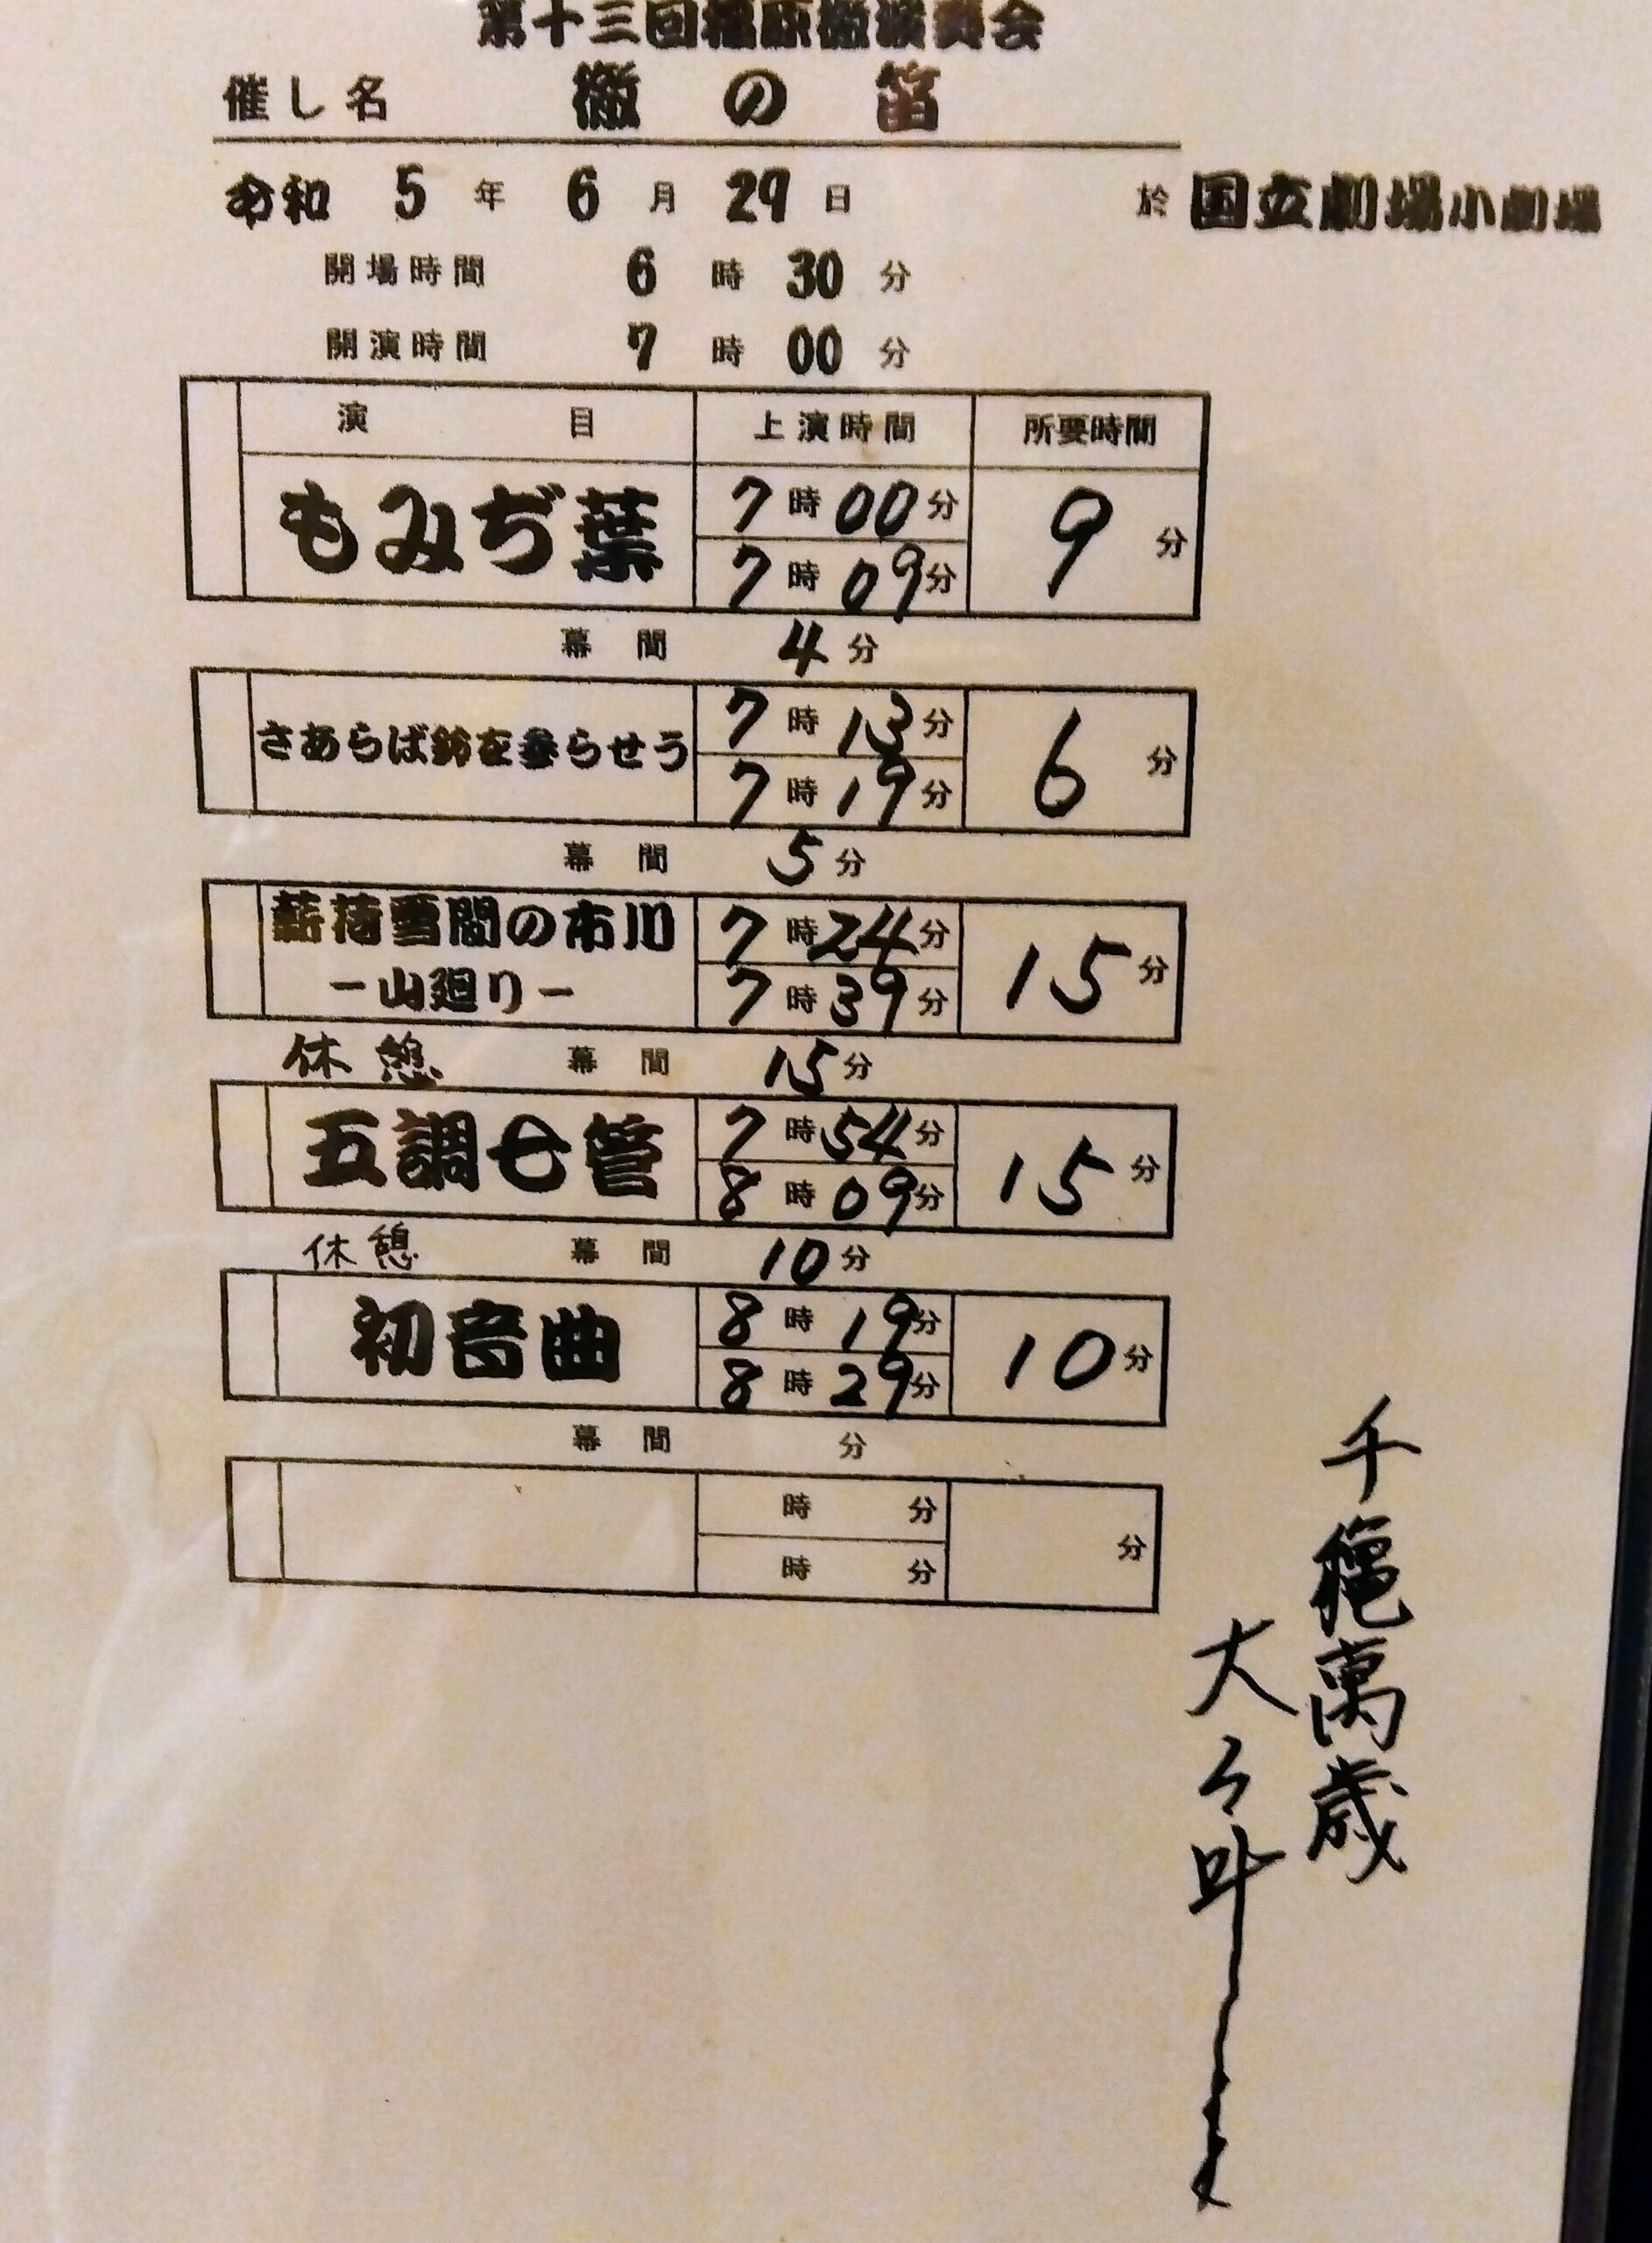 第十三回福原徹演奏会
催し名 徹の笛
令和 5 年 6 月 29 日 於 国立劇場小劇場
開場時間 6 時 30 分
開演時間 7 時 00 分
演目 上演時間 所要時間
もみぢ葉 7 時 00 分 9 分
7 時 09 分
幕間 4 分
さあらば鈴を参らせう 7 時 13 分 6 分
7 時 19 分
幕間 5 分
薪荷雪間の市川 7 時 24 分 15 分
−山廻り− 7 時 39 分
休憩 幕間 15 分
五調七管 7 時 54 分 15 分
8 時 09 分
休憩 幕間 10 分
初音曲 8 時 19 分 10 分
8 時 29 分
幕間 分
時 分 分
時 分
千穐萬歳
大々叶